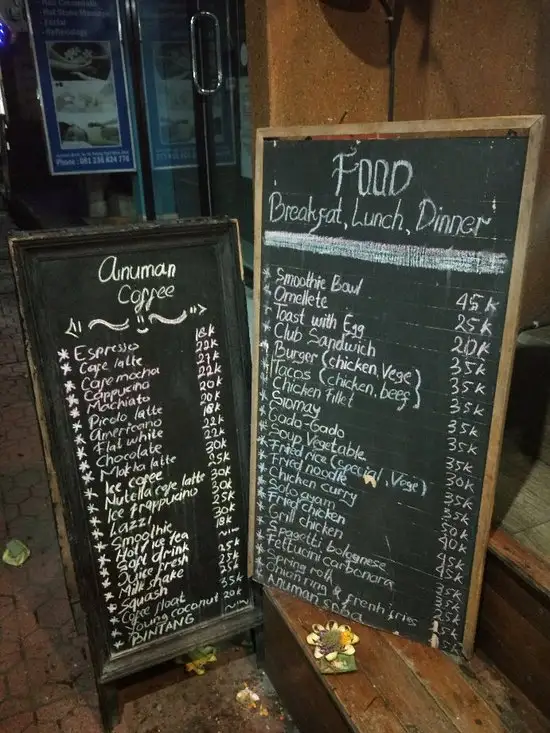 - Hot Stone Massage
- Facial
- Reflexology
Phone : 081 236 624 176
anuman
Coffee
* Espresso 18k
* Cafe latte 22k
* Cafe mocha 27k
* Cappucino 22k
* Machiato 20k
* Picolo latte 20k
* Americano 18k
* Flat white 22k
* Chocolate 30k
* Mokta latte 25k
* Ice cofee 30k
* Nutella cafe latte 30k
* Ice frappucino 30k
* Lazzi 25k
* Smoothie 30k
* Hot / ice tea 18k
* Soft drink
* Juice fresh 25k
* Milk shake 25k
* Squash 25k
* Cofee float 35k
* Young coconut 20k
* BINTANG
FOOD
Breakfat, Lunch, Dinner
* Smoothie Bowl 45k
* Omellete 25k
* Toast with Egg 20k
* Club Sandwich 35k
* Burger (chicken, Vege) 35k
* Tacos (chicken, beef) 35k
* Chicken fillet 35k
* Siomay 35k
* Gado-Gado 35k
* Soup Vegetable 30k
* Fried rice (special, Vege) 35k
* Fried noodle 35k
* Chicken curry
* Soto ayam
* Fried chicken
* Grill chicken
* Spagetti bolognese
* Fettucini carbonara
* Spring roll
* Onion ring & fresh fries
* Anuman